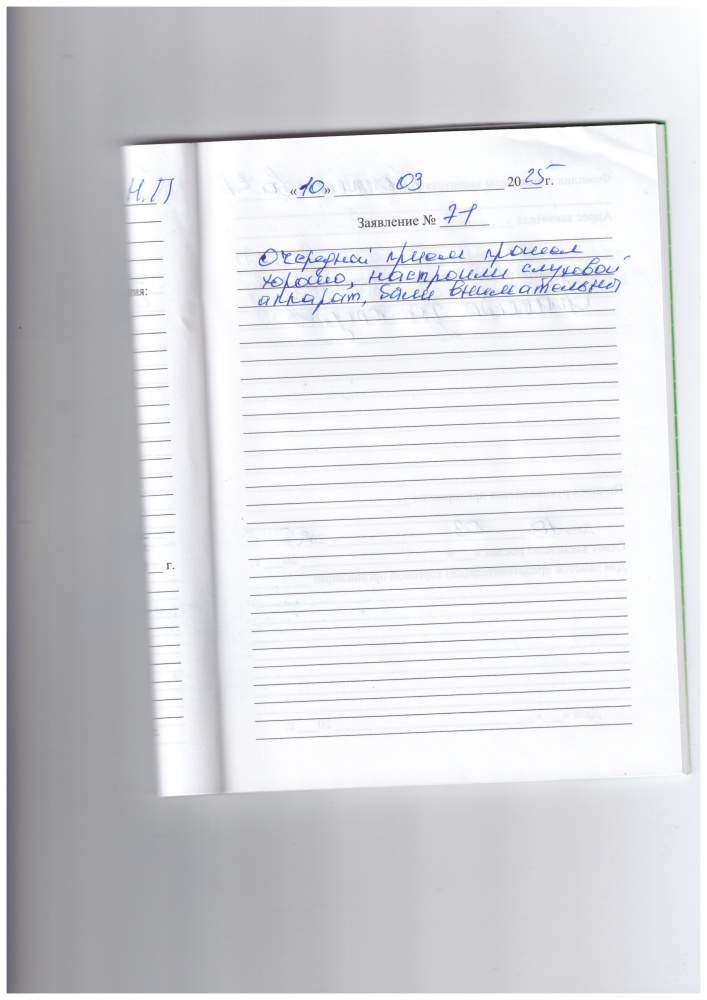 Н.П
«10» 03 2025г.
Заявление № 71
Очередной прием прошел
хорошо, настроили слуховой
аппарат, были внимательны
ия:
г.